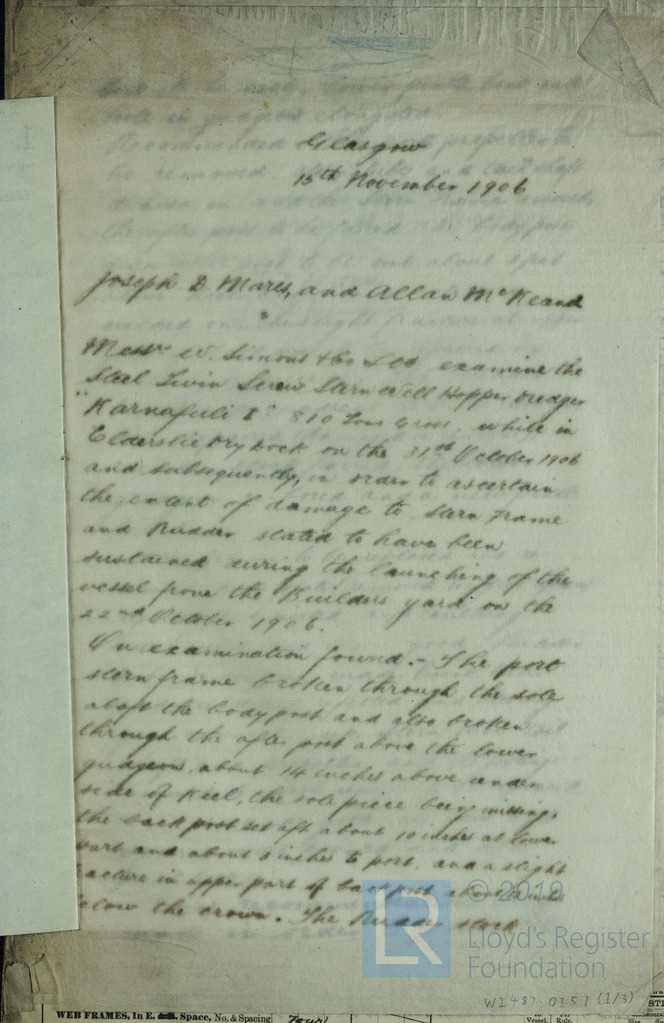 Glasgow
15th November 1906
Joseph D Mares, and Allan McKeand
Messrs W. Simons & Co Ltd examine the
Steel Twin Screw Stern Well Hopper Dredger
"Karnafuli I" 810 Tons Gross, while in
Elderslie Dry Dock on the 31st October 1906
and subsequently, in order to ascertain
the extent of damage to Stern Frame
and Rudder stated to have been
sustained during the launching of the
vessel from the Builders yard on the
22nd October 1906.
On examination found:- The port
stern frame broken through the sole
abaft the body post and also broken
through the after post above the lower
gudgeon, about 14 inches above under
side of Keel, the sole piece being missing,
the back post set aft about 10 inches at lower
part and about 5 inches to port, and a slight
fracture in upper part of back post about inches
below the crown. The Rudder stock
© 2019
LR
Lloyd's Register
Foundation
W1487-0157 (1/3)
WEB FRAMES, In E. & B. Space, No. & Spacing Four